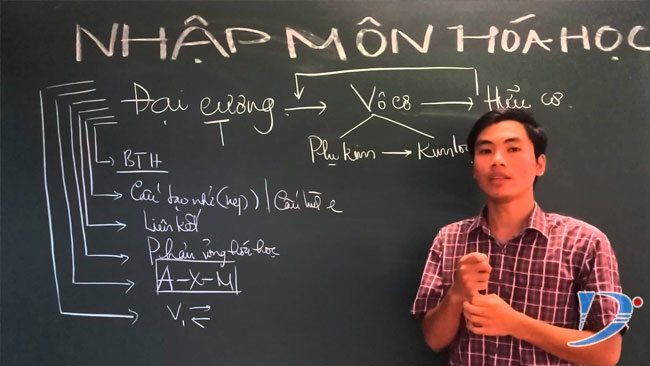 NHẬP MÔN HÓA HỌC
Đại cương → Vô cơ → Hữu cơ.
Phi kim → Kim loạ
BTH
Cấu tạo ng.tử (nep) | Cấu hình e
Liên kết
Phản ứng hóa học
A-X-M
V, ⇌